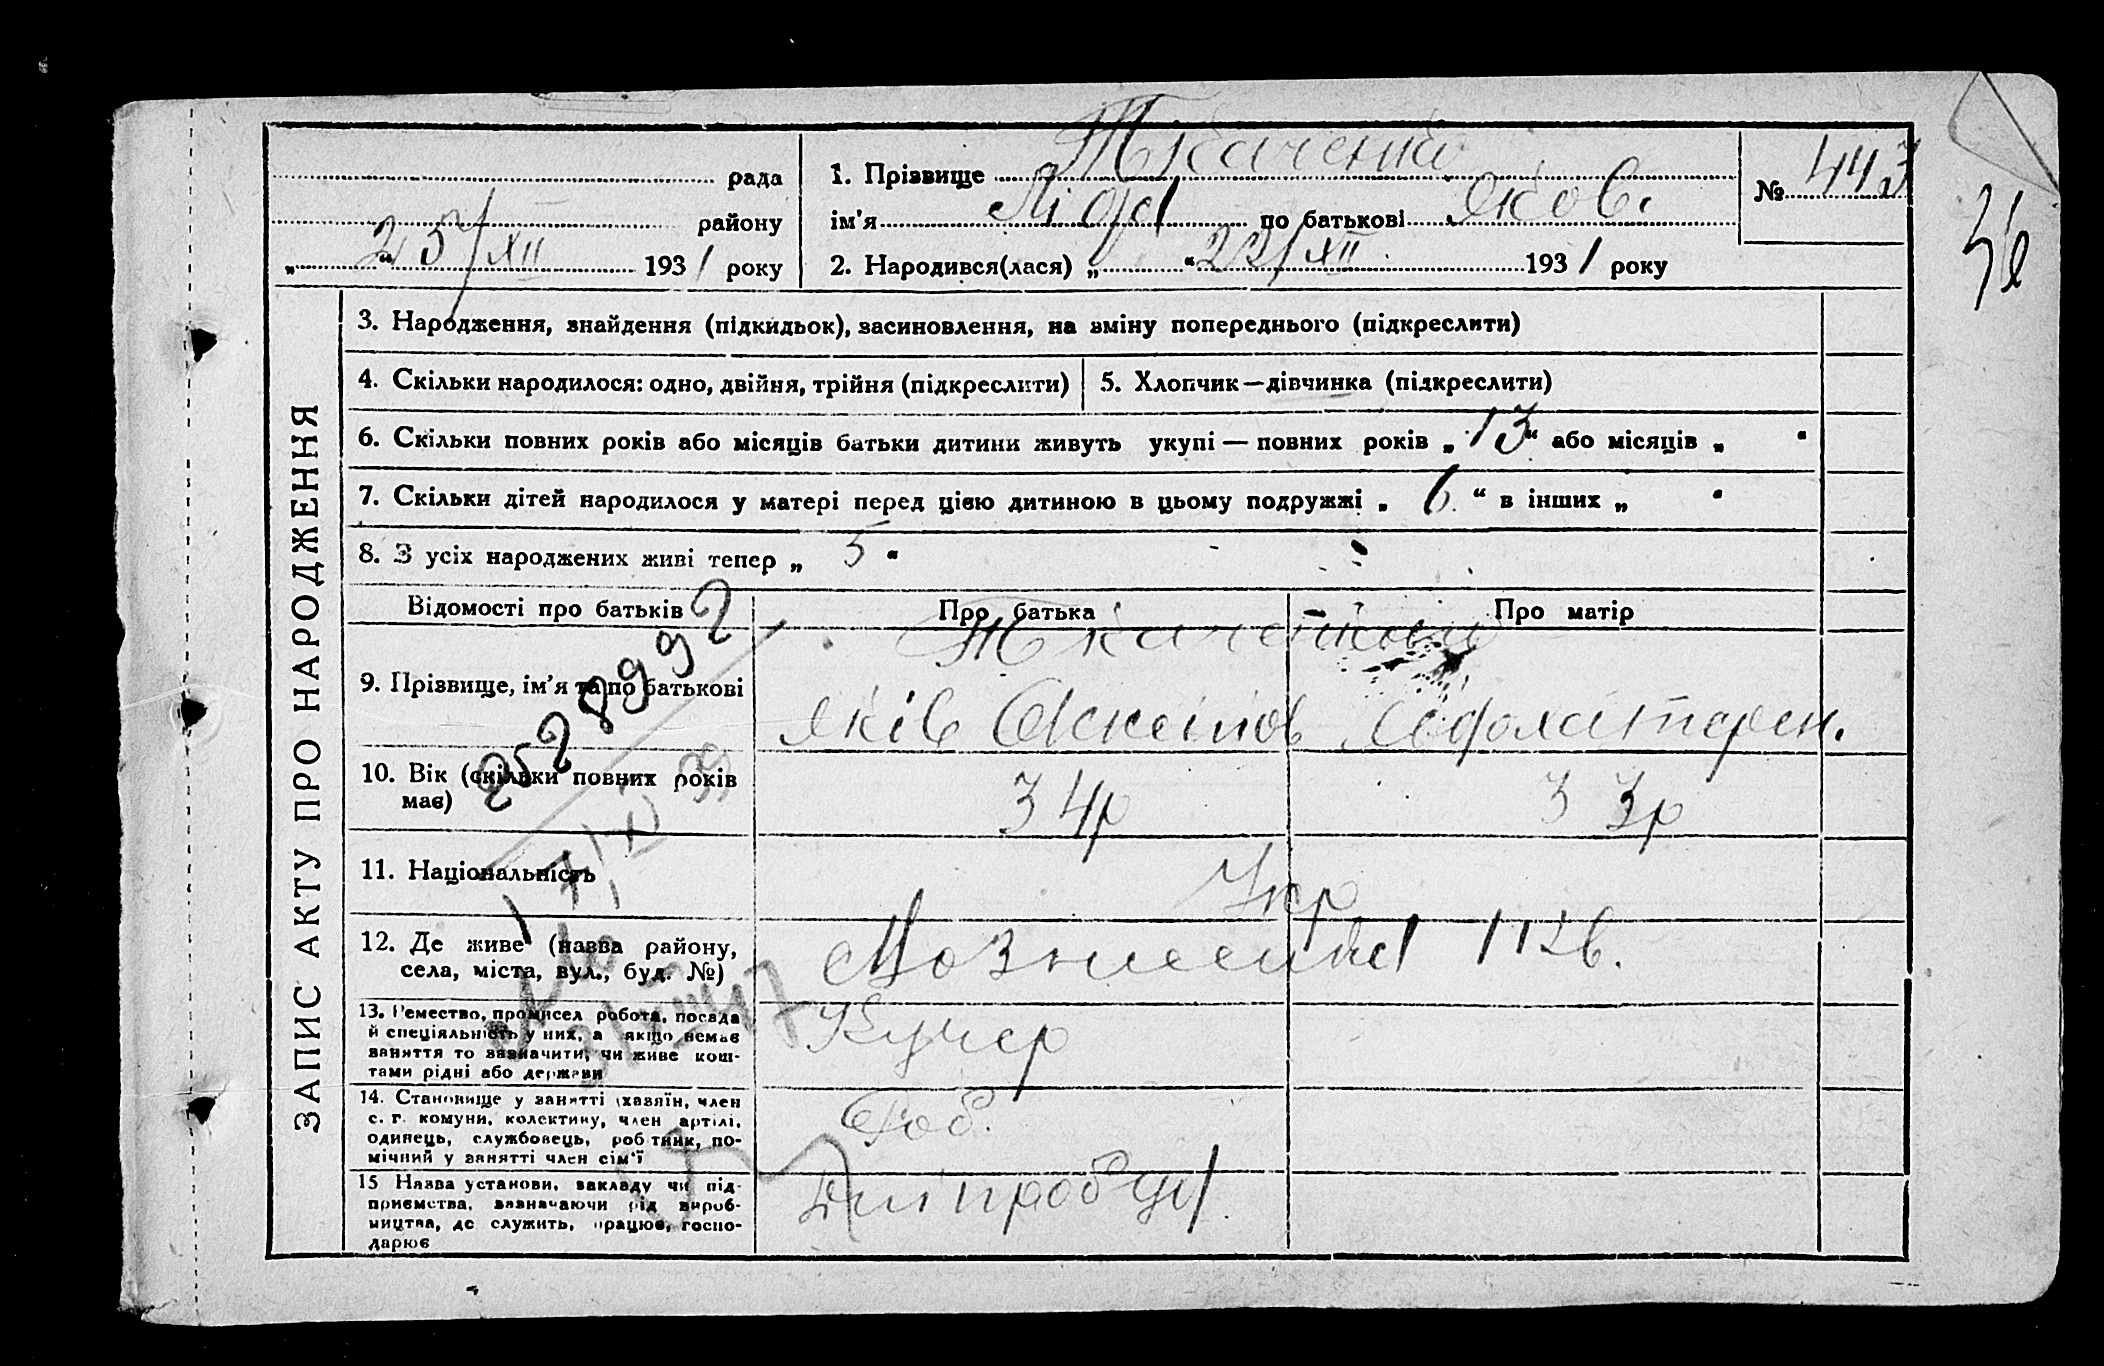 рада
району
25/XII 1931 року
1. Прізвище Ткаченко
ім'я Ліда по батькові Яков.
2. Народився(лася) „ “ 22/XII 1931 року
№ 443
36
ЗАПИС АКТУ ПРО НАРОДЖЕННЯ
3. Народження, знайдення (підкидьок), засиновлення, на зміну попереднього (підкреслити)
4. Скільки народилося: одно, двійня, трійня (підкреслити)
5. Хлопчик—дівчинка (підкреслити)
6. Скільки повних років або місяців батьки дитини живуть укупі — повних років „ 13 “ або місяців „ “
7. Скільки дітей народилося у матері перед цією дитиною в цьому подружжі „ 6 “ в інших „ “
8. З усіх народжених живі тепер „ 5 “
Відомості про батьків
Про батька
Про матір
9. Прізвище, ім'я та по батькові
Ткаченко
Яків
10. Вік (скільки повних років
має)
34р
33р
11. Національність
Укр
12. Де живе (назва району,
села, міста, вул., буд. №)
13. Ремество, промисел робота, посада
й спеціяльність у них, а якщо немає
заняття то зазначити, чи живе кош-
тами рідні або держави
Кучер
14. Становище у занятті (хазяїн, член
с. г. комуни, колектику, член артілі,
одинець, службовець, робітник, по-
мічний у занятті член сім'ї
Роб.
15 Назва установи, закладу чи під-
приємства, зазначаючи рід вироб-
ництва, де служить, працює, госпо-
дарює